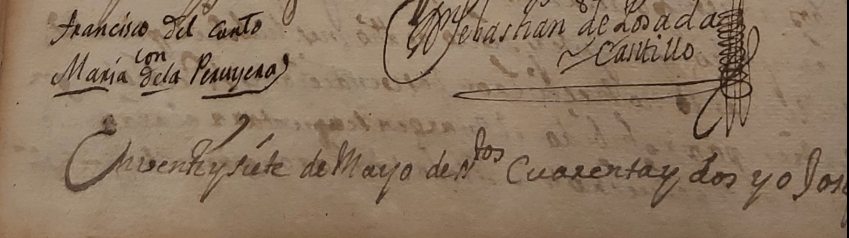 Francisco del Canto
con
Maria dela Peruyera
Sebastian de Posada
Cantillo
En veinty siete de Mayo de tos Cuarentay dos yo Jose